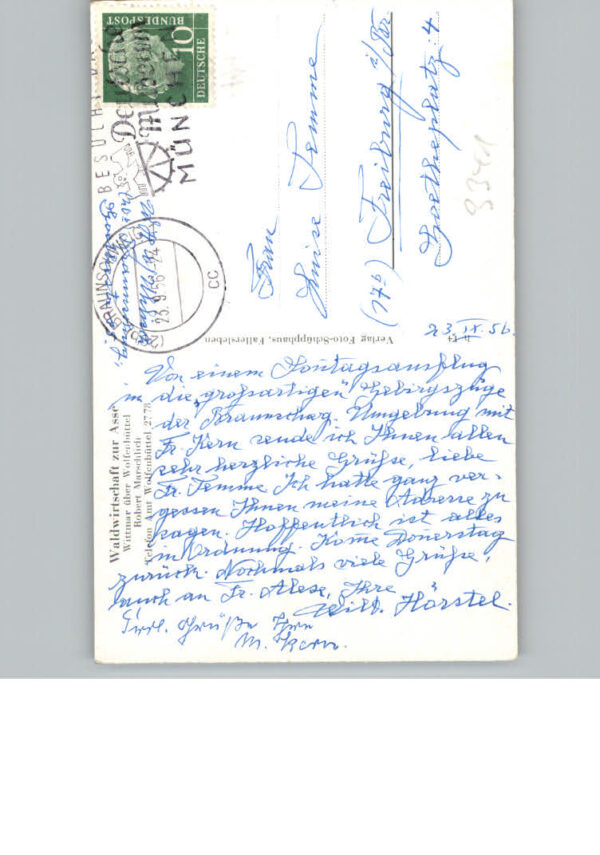 DEUTSCHE
BUNDESPOST
10
BESUCHT
Deutsche
Museum
MÜNCHEN
BRAUNSCHW
23.9.56-24
CC
Frau
Luise Temme
(17b) Freiburg i/Br
Goetheplatz 4
3341
Verlag Foto-Schüpphaus, Fallersleben
Waldwirtschaft zur Asse
Wittmar über Wolfenbüttel
Robert Marschlich
Telefon Amt Wolfenbüttel 2778
23.IX.56.
Von einem Sontagsausflug
in die „großartigen" Gebirgszüge
der Braunschwg. Umgebung mit
Fr. Kern sende ich Ihnen allen
sehr herzliche Grüße, liebe
Fr. Temme Ich hatte ganz ver-
gessen Ihnen meine Adresse zu
sagen. Hoffentlich ist alles
in Ordnung. Kome Donerstag
zurück. Nochmals viele Grüße,
auch an Fr. Alese, Ihre
Wilh. Hörstel.
Grüße Ihre
M. Kern.